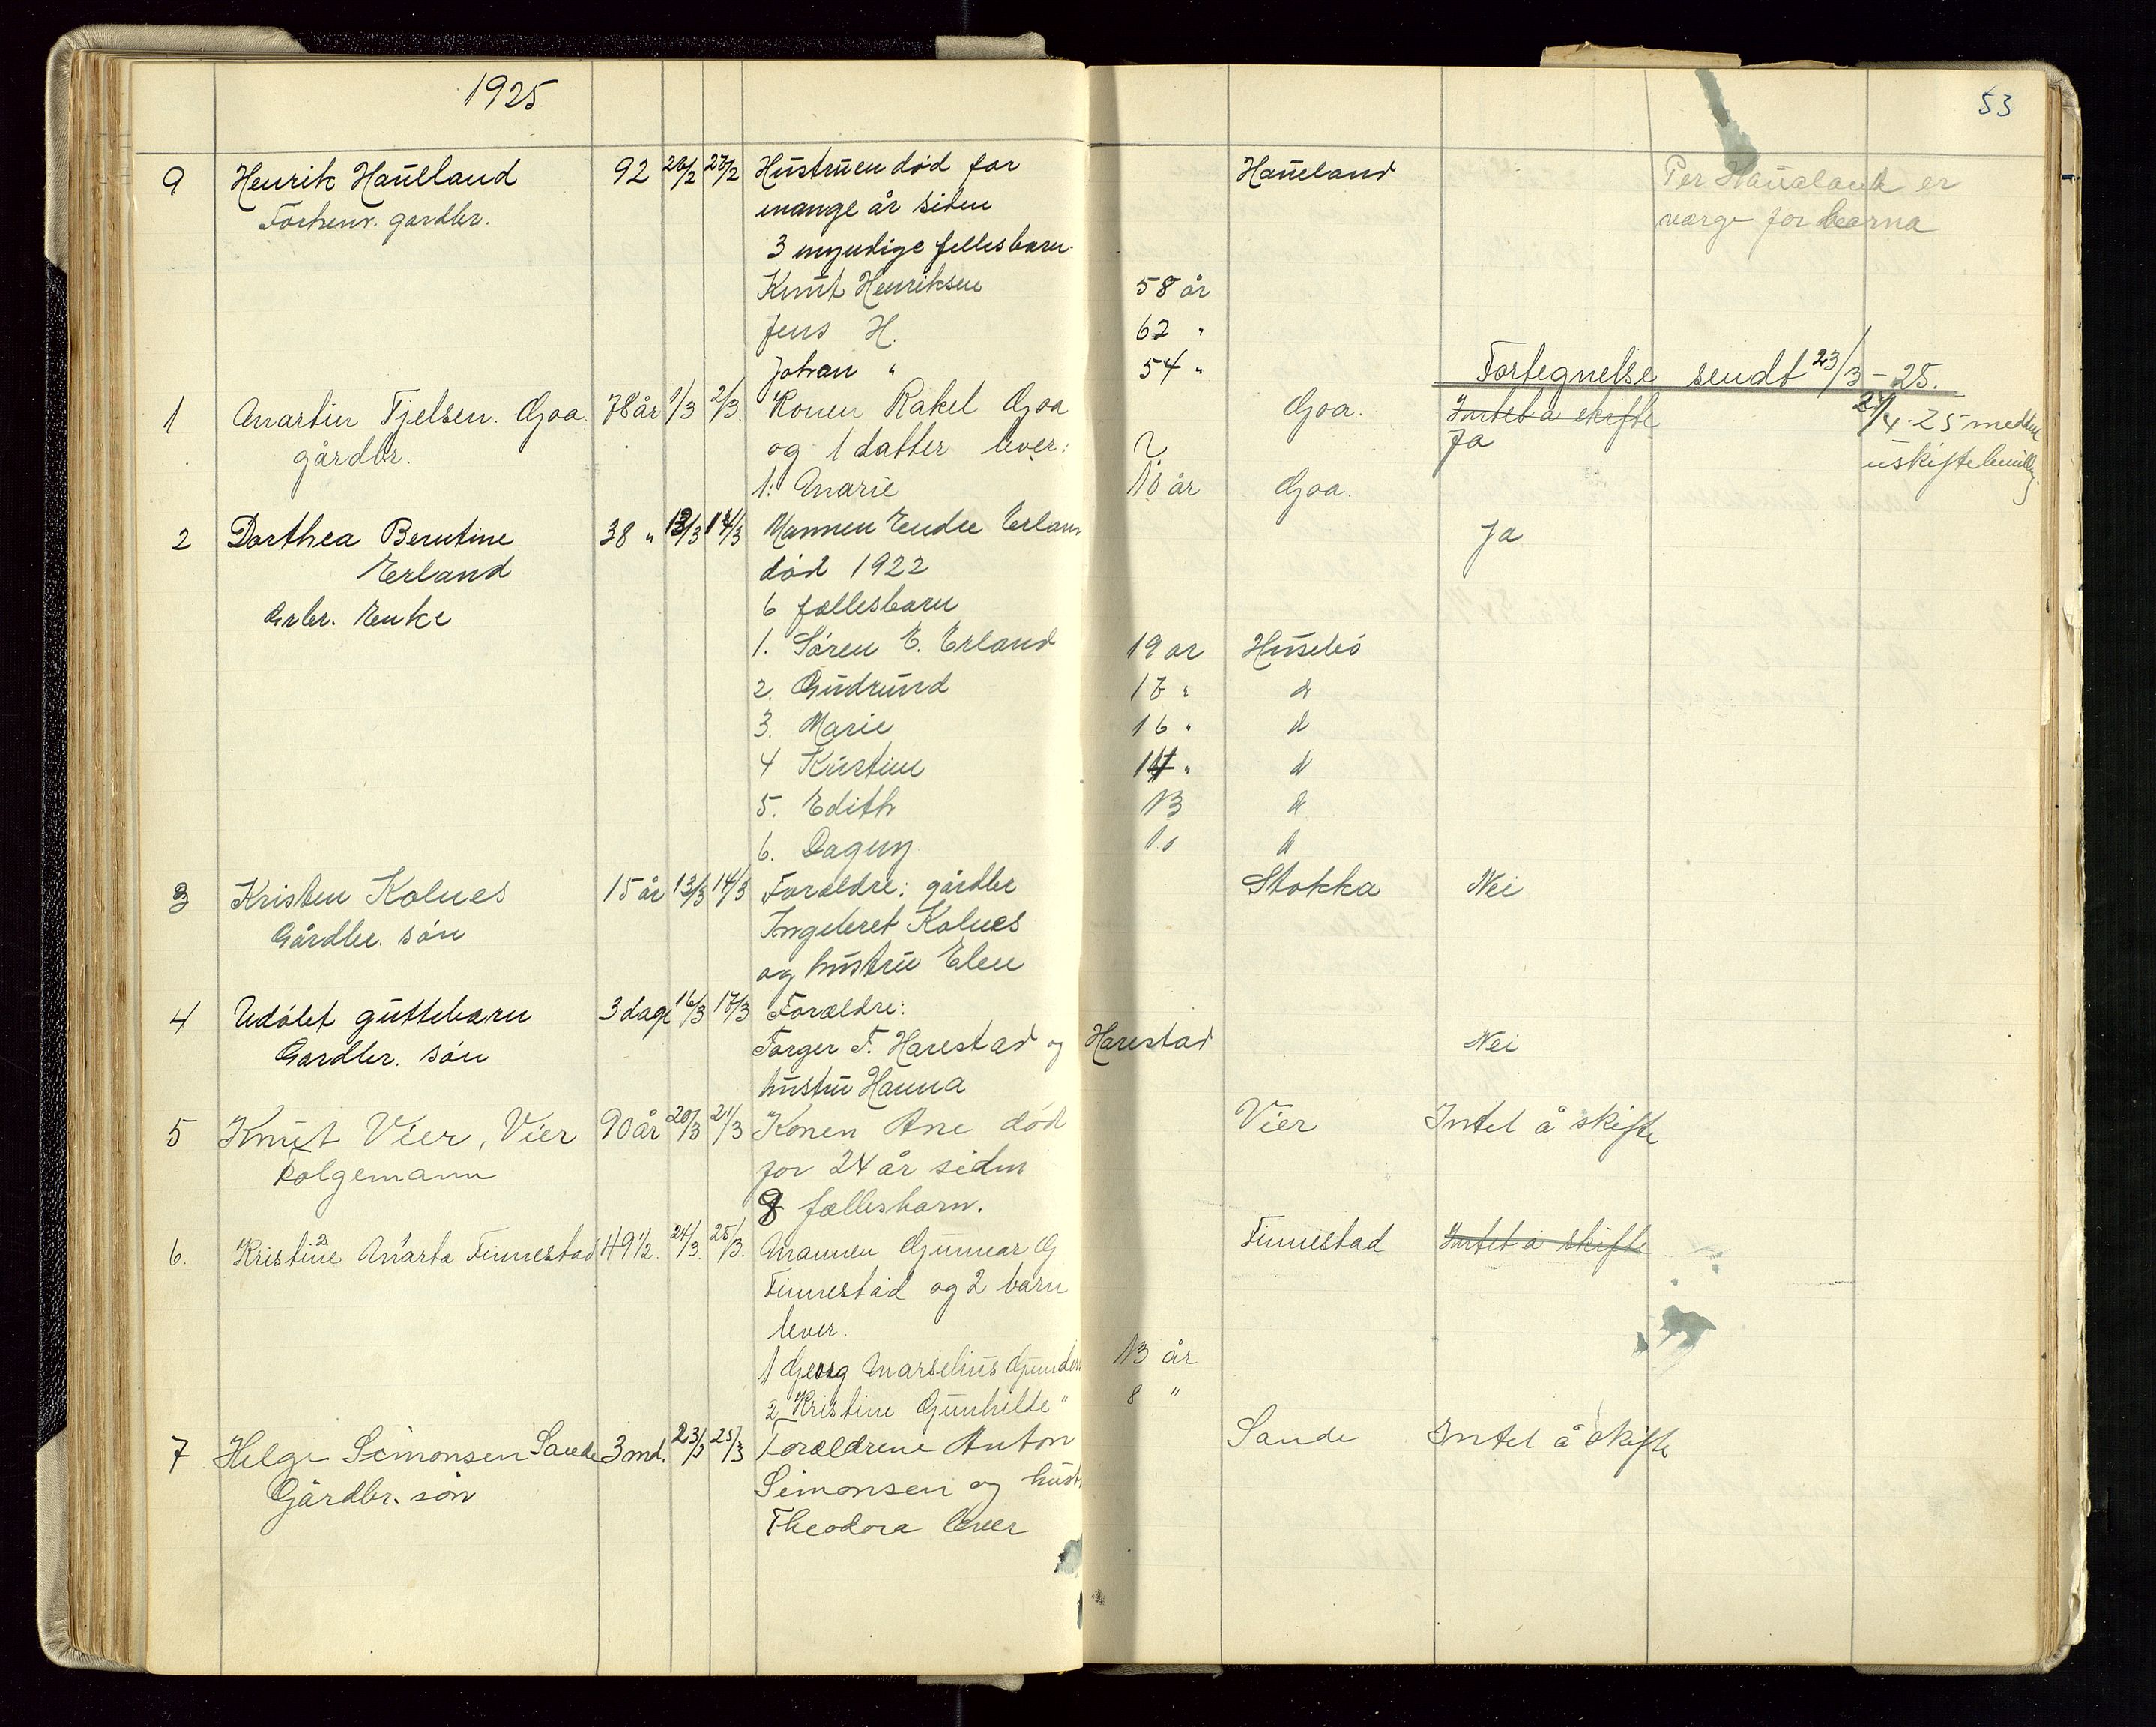 1925
53
9 Henrik Haüland 92 26/2 27/2 Hustruen død for Haüeland Per Haüaland er
Forhenv. gardbr. mange år siden værge for barna
3 myndige fellesbarn
Knut Henriksen 58 år
Jens H. 62 "
Johan " 54 "
Fortegnelse sendt 23/3 - 25.
1 Martin Tjelsen. Goa. 78 år 1/3 2/3. Konen Rakel Goa Goa. Intet å skifte 27/4-25 meddelt
gårdbr. og 1 datter lever: Ja uskiftebevilling
1. Marie 18 år Goa.
2 Dorthea Berntine 38 " 13/3 14/3 Mannen Endre Erland Ja
Erland død 1922
Arbr. Enke 6 fællesbarn
1. Søren E. Erland 19 år Husebø
2. Gudrund 17 " d
3. Marie 16 " d
4 Kristine 14 " d
5. Edith 13 d
6. Dagny 10 d
3 Kristen Kolnes 15 år 13/3 14/3 Forældre: gårdbr Stokka Nei
Gårdbr. søn Ingebret Kolnes
og hustru Elen
4 Udøbt guttebarn 3 dage 16/3 17/3 Forældre:
Gardbr. søn Torger T. Harestad og Harestad Nei
hustru Hanna
5 Knut Vier, Vier 90 år 20/3 21/3 Konen Ane død Vier Intet å skifte
Folgemann for 24 år siden
8 fællesbarn.
6. Kristine Marta Finnestad 49 1/2. 24/3. 25/3. Mannen Gunnar G Finnestad Intet å skifte
Finnestad og 2 barn
lever.
1 Georg Marselius Gunders 13 år
2 Kristine Gunhilde " 8 "
7 Helge Simonsen Sande 3 md. 23/3 25/3 Forældrene Anton Sande Intet å skifte
Gårdbr. søn Simonsen og hust
Theodora lever